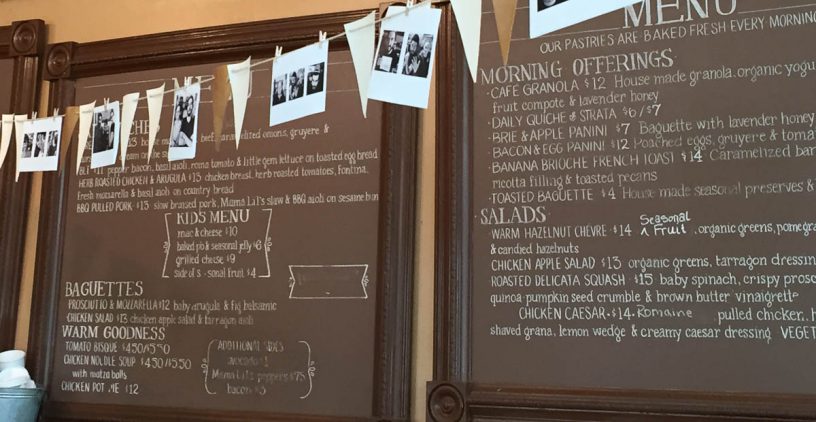 MENU
CHES
$13 house made beef, caramelized onions, gruyere &
BLT $11 pepper bacon, basil aioli, roma tomato & little gem lettuce on toasted egg bread
HERB ROASTED CHICKEN & ARUGULA $13 chicken breast, herb roasted tomatoes, fontina,
fresh mozzarella & basil aioli on country bread
BBQ PULLED PORK $13 slow braised pork, Mama Lil's slaw & BBQ aioli on sesame bun
KIDS MENU
mac & cheese $10
baked pb & seasonal jelly $6
grilled cheese $9
side of seasonal fruit $4
BAGUETTES
PROSCIUTTO & MOZZARELLA $12 baby arugula & fig balsamic
CHICKEN SALAD $13 chicken apple salad & tarragon aioli
WARM GOODNESS
TOMATO BISQUE $4.50/$5.50
CHICKEN NOODLE SOUP $4.50/$5.50
with matza balls
CHICKEN POT PIE $12
ADDITIONAL SIDES
avocado $1
Mama Lil's peppers $.75
bacon $3
MENU
OUR PASTRIES ARE BAKED FRESH EVERY MORNING
MORNING OFFERINGS
·CAFE GRANOLA $12 House made granola, organic yogu
fruit compote & lavender honey
·DAILY QUICHE or STRATA $6/$7
·BRIE & APPLE PANINI $7 Baguette with lavender honey
·BACON & EGG PANINI $12 Poached eggs, gruyere & toma
·BANANA BRIOCHE FRENCH TOAST $14 Caramelized ban
ricotta filling & toasted pecans
·TOASTED BAGUETTE $4 House made seasonal preserves &
·SALADS
·WARM HAZELNUT CHÈVRE ·$14 Seasonal Fruit, organic greens, pomegra
& candied hazelnuts
CHICKEN APPLE SALAD $13 organic greens, tarragon dressin
ROASTED DELICATA SQUASH $15 baby spinach, crispy prosc
quinoa pumpkin seed crumble & brown butter vinaigrette
CHICKEN CAESAR·$14· Romaine pulled chicken, h
shaved grana, lemon wedge & creamy caesar dressing VEGET